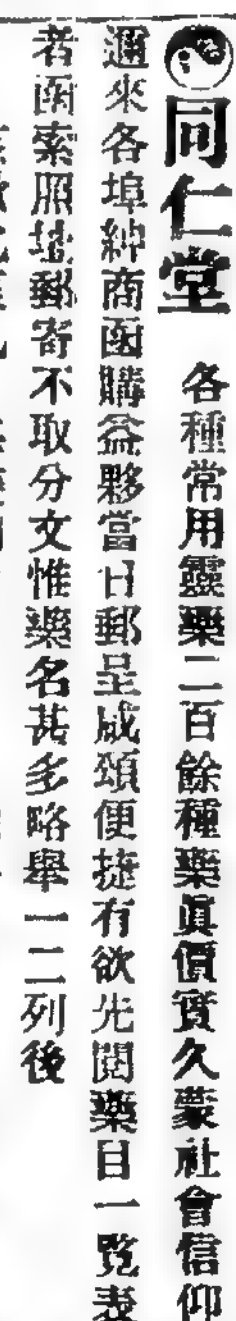 同仁堂 各種常用靈藥二百餘種藥眞價實久蒙社會信仰
邇來各埠紳商函購益夥當日郵呈咸頌便捷有欲先閱藥目一覽表
者函索照堂郵寄不取分文惟藥名甚多略舉一二列後